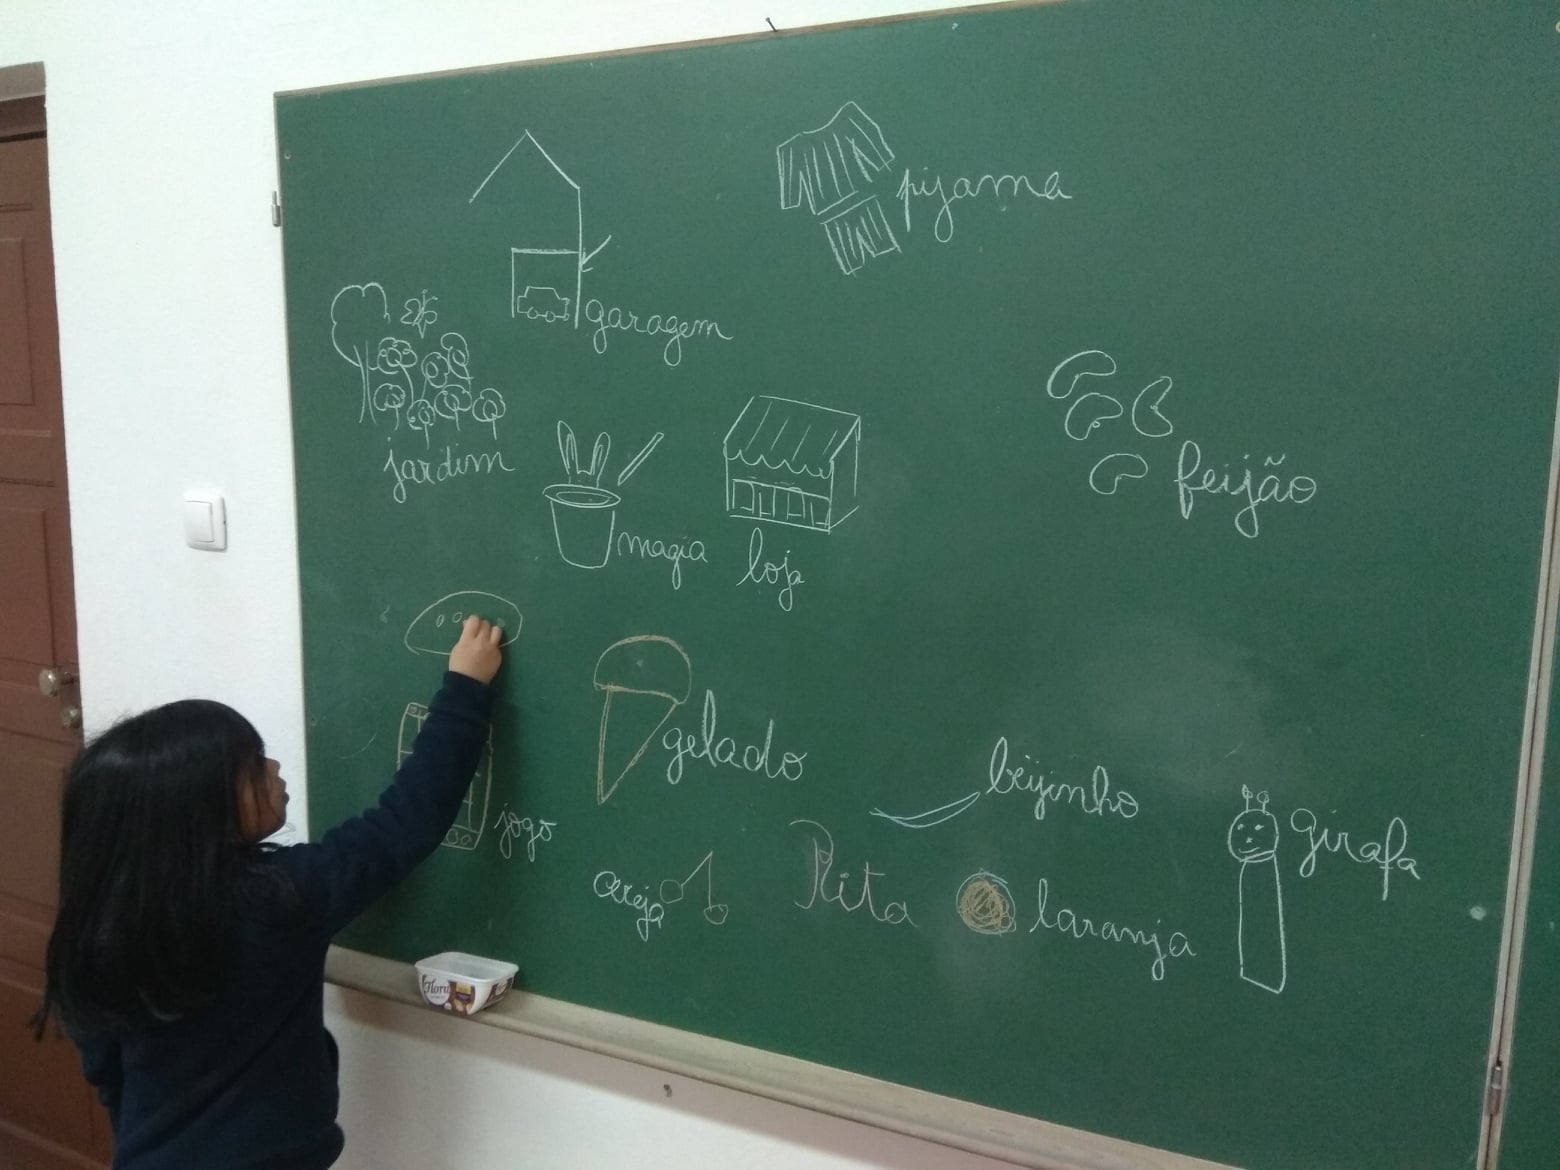 pijama
garagem
jardim
feijão
magia
loja
gelado
jogo
beijinho
girafa
cereja
Rita
laranja
Flora